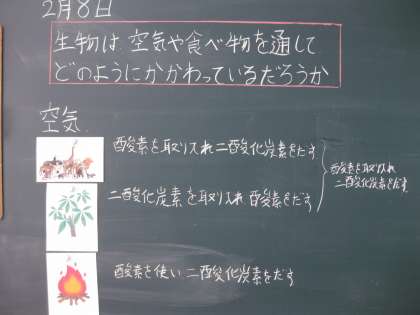 2月8日
生物は空気や食べ物を通して
どのようにかかわっているだろうか
空気
酸素を取り入れ二酸化炭素をだす
二酸化炭素を取り入れ酸素をだす
酸素を取り入れ
二酸化炭素をだす
酸素を使い二酸化炭素をだす